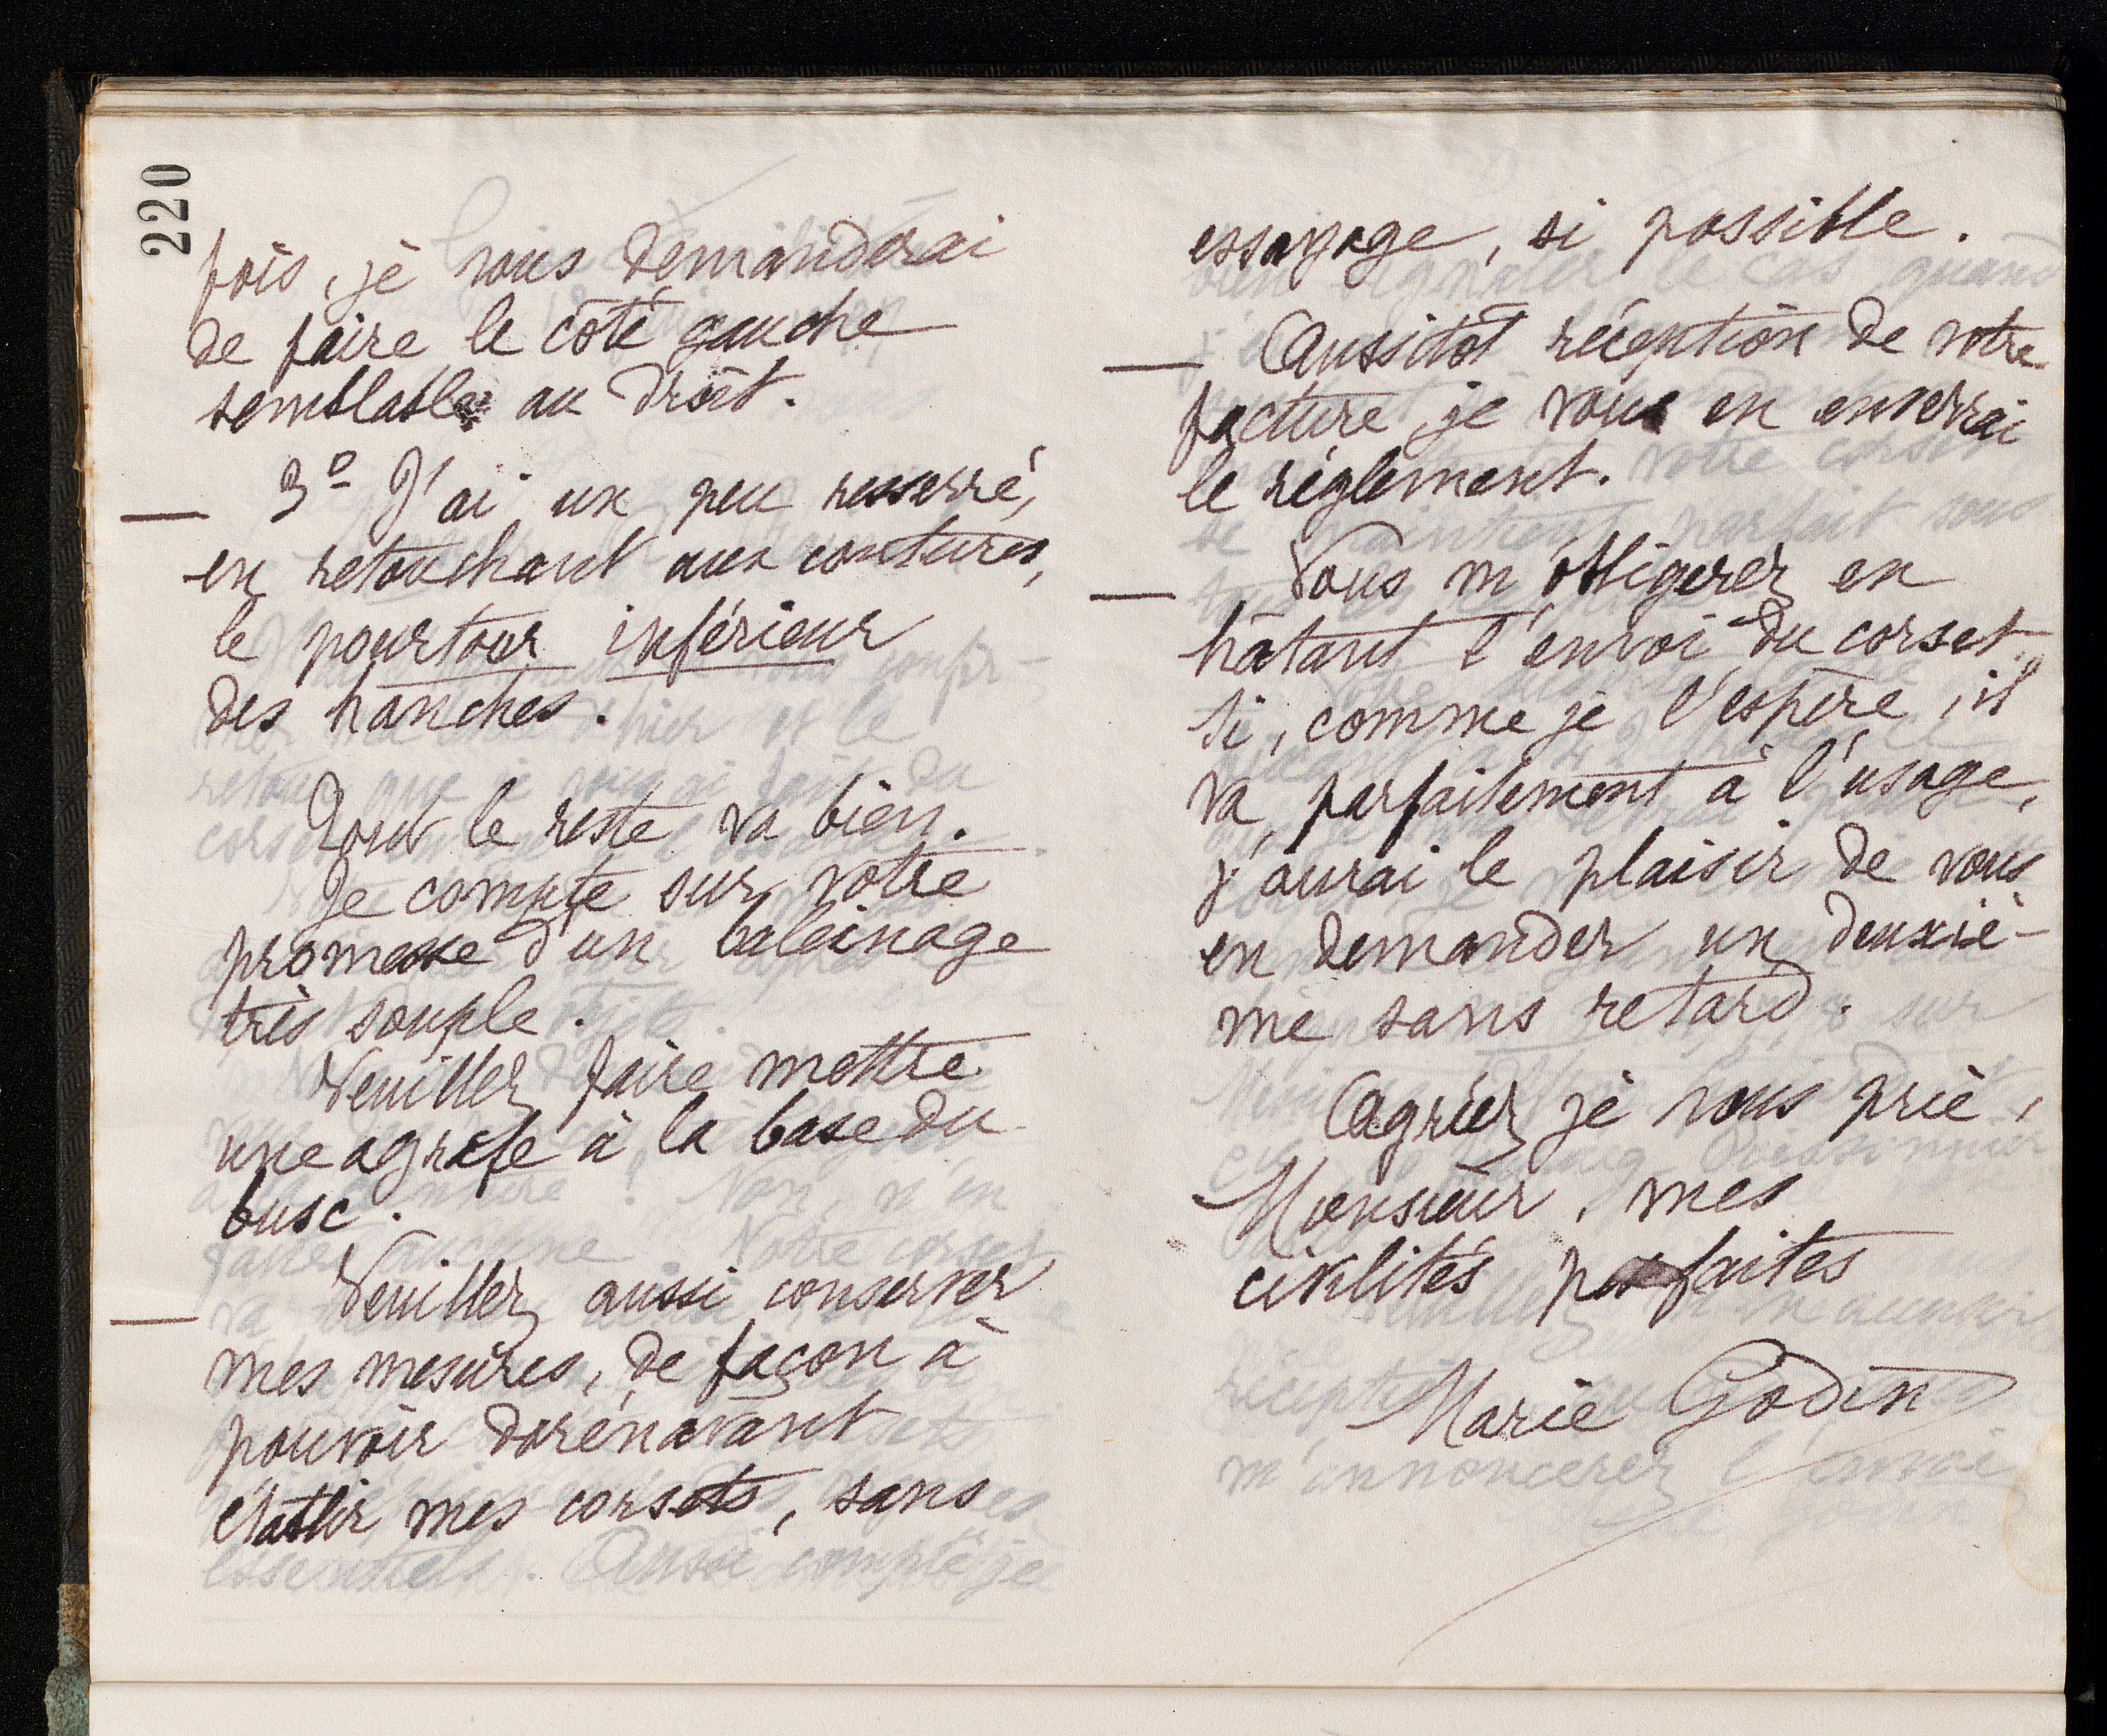 220
fois, je vous demanderai
de faire le côté gauche
semblable au droit.
— 3º J'ai un peu resserré,
en retouchant aux coutures,
le pourtour inférieur
des hanches.
Tout le reste va bien.
Je compte sur votre
promesse d'un baleinage
très souple.
Veuillez faire mettre
une agrafe à la base du
busc.
— Veuillez aussi conserver
mes mesures, de façon à
pouvoir dorénavant
établir mes corsets, sans
essayage, si possible.
— Aussitôt réception de votre
facture je vous en enverrai
le règlement.
— Vous m'obligerez en
hâtant l'envoi du corset.
Si, comme je l'espère, il
va parfaitement à l'usage,
j'aurai le plaisir de vous
en demander un deuxiè-
me sans retard.
Agréez je vous prie,
Monsieur, mes
civilités parfaites
Marie Godin